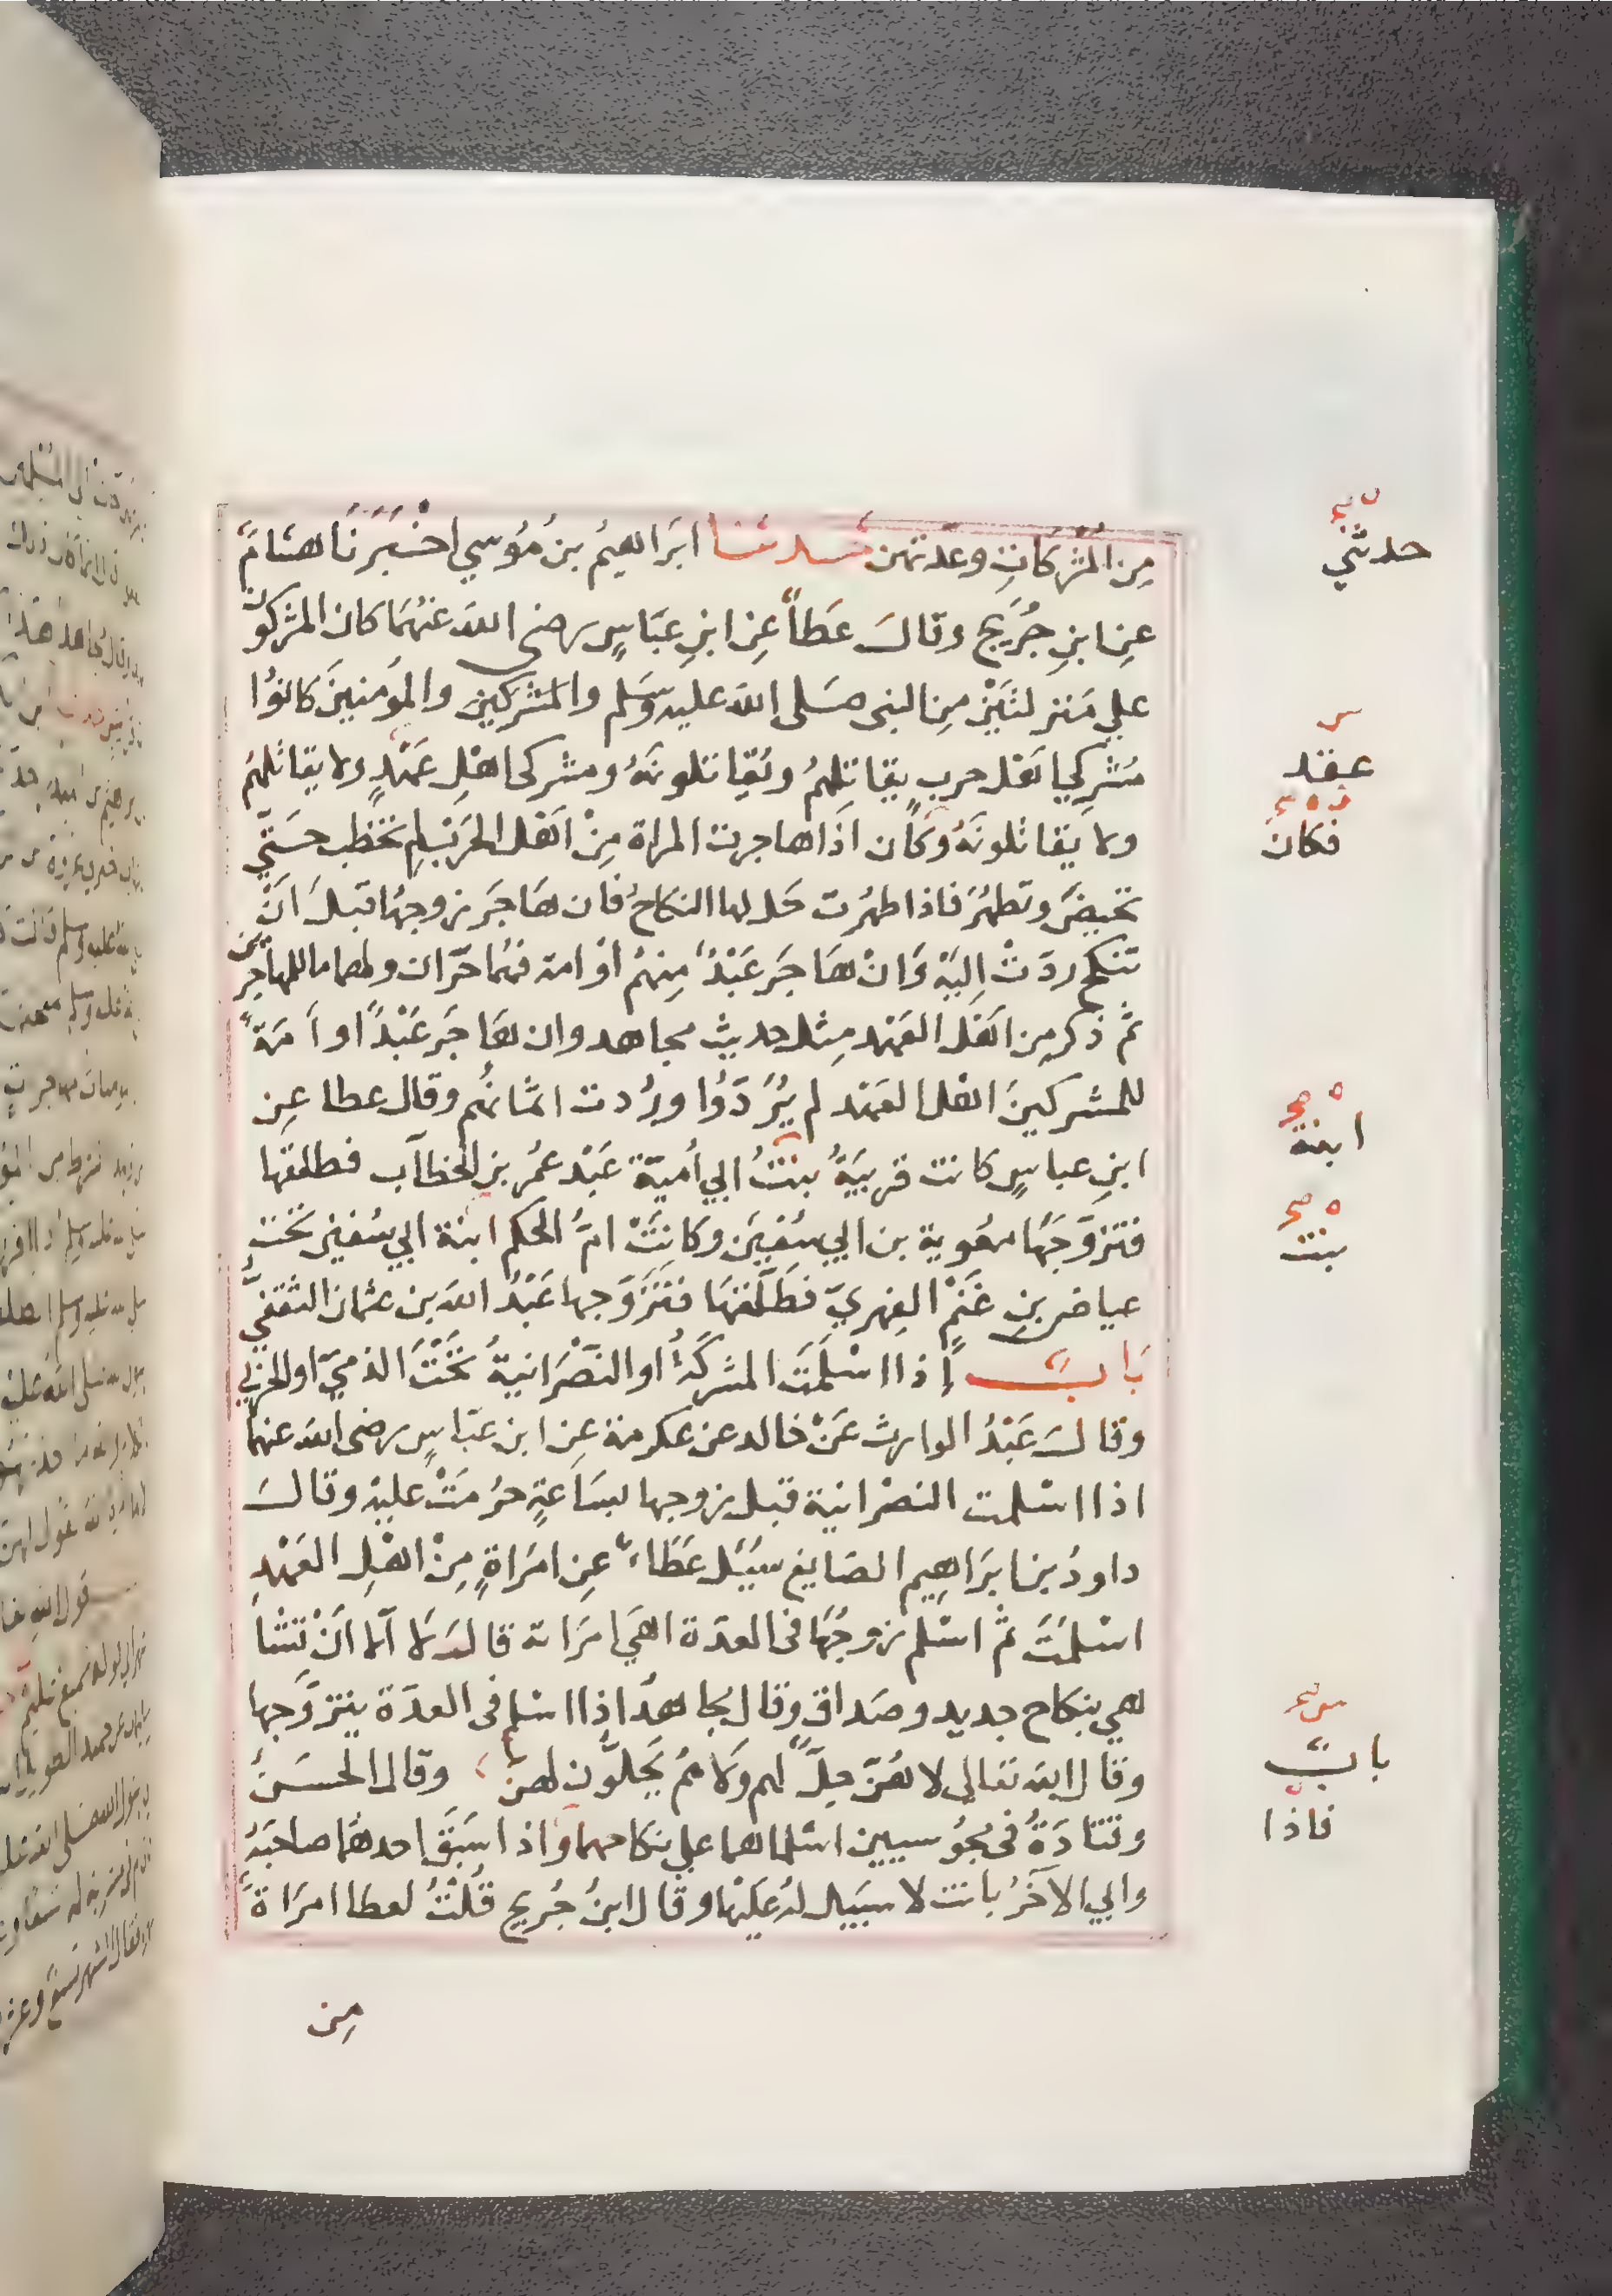 مِن المُشركَاتِ وعدّتهن حَدثنا ابرَاهيمُ بنُ مُوسي اخْبَرَنَا هشامٌ
عنِ ابنِ جُرَيج وقالَ عَطَاٌ عنِ ابنِ عبَّاسٍ رضى الله عنهُمَا كان المشركونَ
علي مَنزلتَيْنِ مِن النبى صَلى الله عليه وسَلم والمشركين والمؤمنينَ كانوُا
مُشرِكي اهَل حربٍ يقاتِلهُمُ ويُقاتلونَهُ ومشركى اهْلِ عَهْدٍ ولا يقاتلهُمُ
ولا يقاتلونَهُ وكان اذَا هاجرت المراة مِنْ اهْل الحَرْب لم تخطب حَتَّي
تحيضَ وتطهُرَ فاذا طهُرَت حَل لها النكاحُ فان هَاجَر زوجهُا قبلَ اَنْ
تنكح ردَتْ اِليَهْ وَانْ هَاجَر عَبْدٌ مِنهُمْ اوْ امة فهُما حّران ولهما ما للمهاجرين
ثم ذكر مِن اهَل العَهد مِثل حديث مجاهد وان هَاجَر عَبْدٌ او اَمَةٌ
للمشركينَ اهْل العَهْد لم يُرَدّوُا وردُت اثمانهُم وقال عطا عِن
ابنِ عباسٍ كانت قريبَةُ بنتُ ابي أميّة عَبْد عمُر بن الخطاب فطلقها
فتزوَّجَها معُوية بن ابي سُفيَن وكانَتْ امُّ الحكم ابنة ابي سُفين تَحْت
عياض بنِ غَنْمٍ الفهريّ فطَلَّقهَا فتَزَوَّجها عَبْدُ الله بن عثمان الثقفيُّ
بَابٌ إِذا اسْلمَت المشركَةُ او النصْرَانيةُ تَحْتَ الذميّ او الحَربي
وقالَ عَبْدُ الوارث عَنْ خالد عن عكرمة عِن ابن عبّاسٍ رضى الله عنهما
اذا اسْلمت النصْرانية قبل زوجها بسَاعةٍ حرُمَتْ عليْه وقالَ
داودُ بن ابرَاهِيم الصَايغ سيَُل عَطَاءٌ عنِ امرَاةٍ مِنْ اهْلِ العَهْدِ
اسْلمَتْ ثم اسْلم زوجُهَا فى العدّة اهَي امرَاته قالَ لاَ الا اَنْ تشْا
هي بنكاح جديد وصَداق وقال مجاهدُ اذا اسْلم فى العدّة يتزوَّجها
وقال الله تعالى لا هُنّ حِلٌّ لهم ولاَ هُمُ يَحِلوُّن لهنّ وقال الحسَنُ
وقتادَةُ فى مجُوسيين اسْلما هما علي نكاحهما واذا سَبَقَ احدهمُا صاحبَهُ
وابي الآخرُ بانت لا سَبَيل لهُ عَليْها وقال ابنُ جُريج قُلتُ لعطا امرَاةٌ
مِن
حدثني
عقد
فكان
ابنة
بنت
بابٌ
فاذا